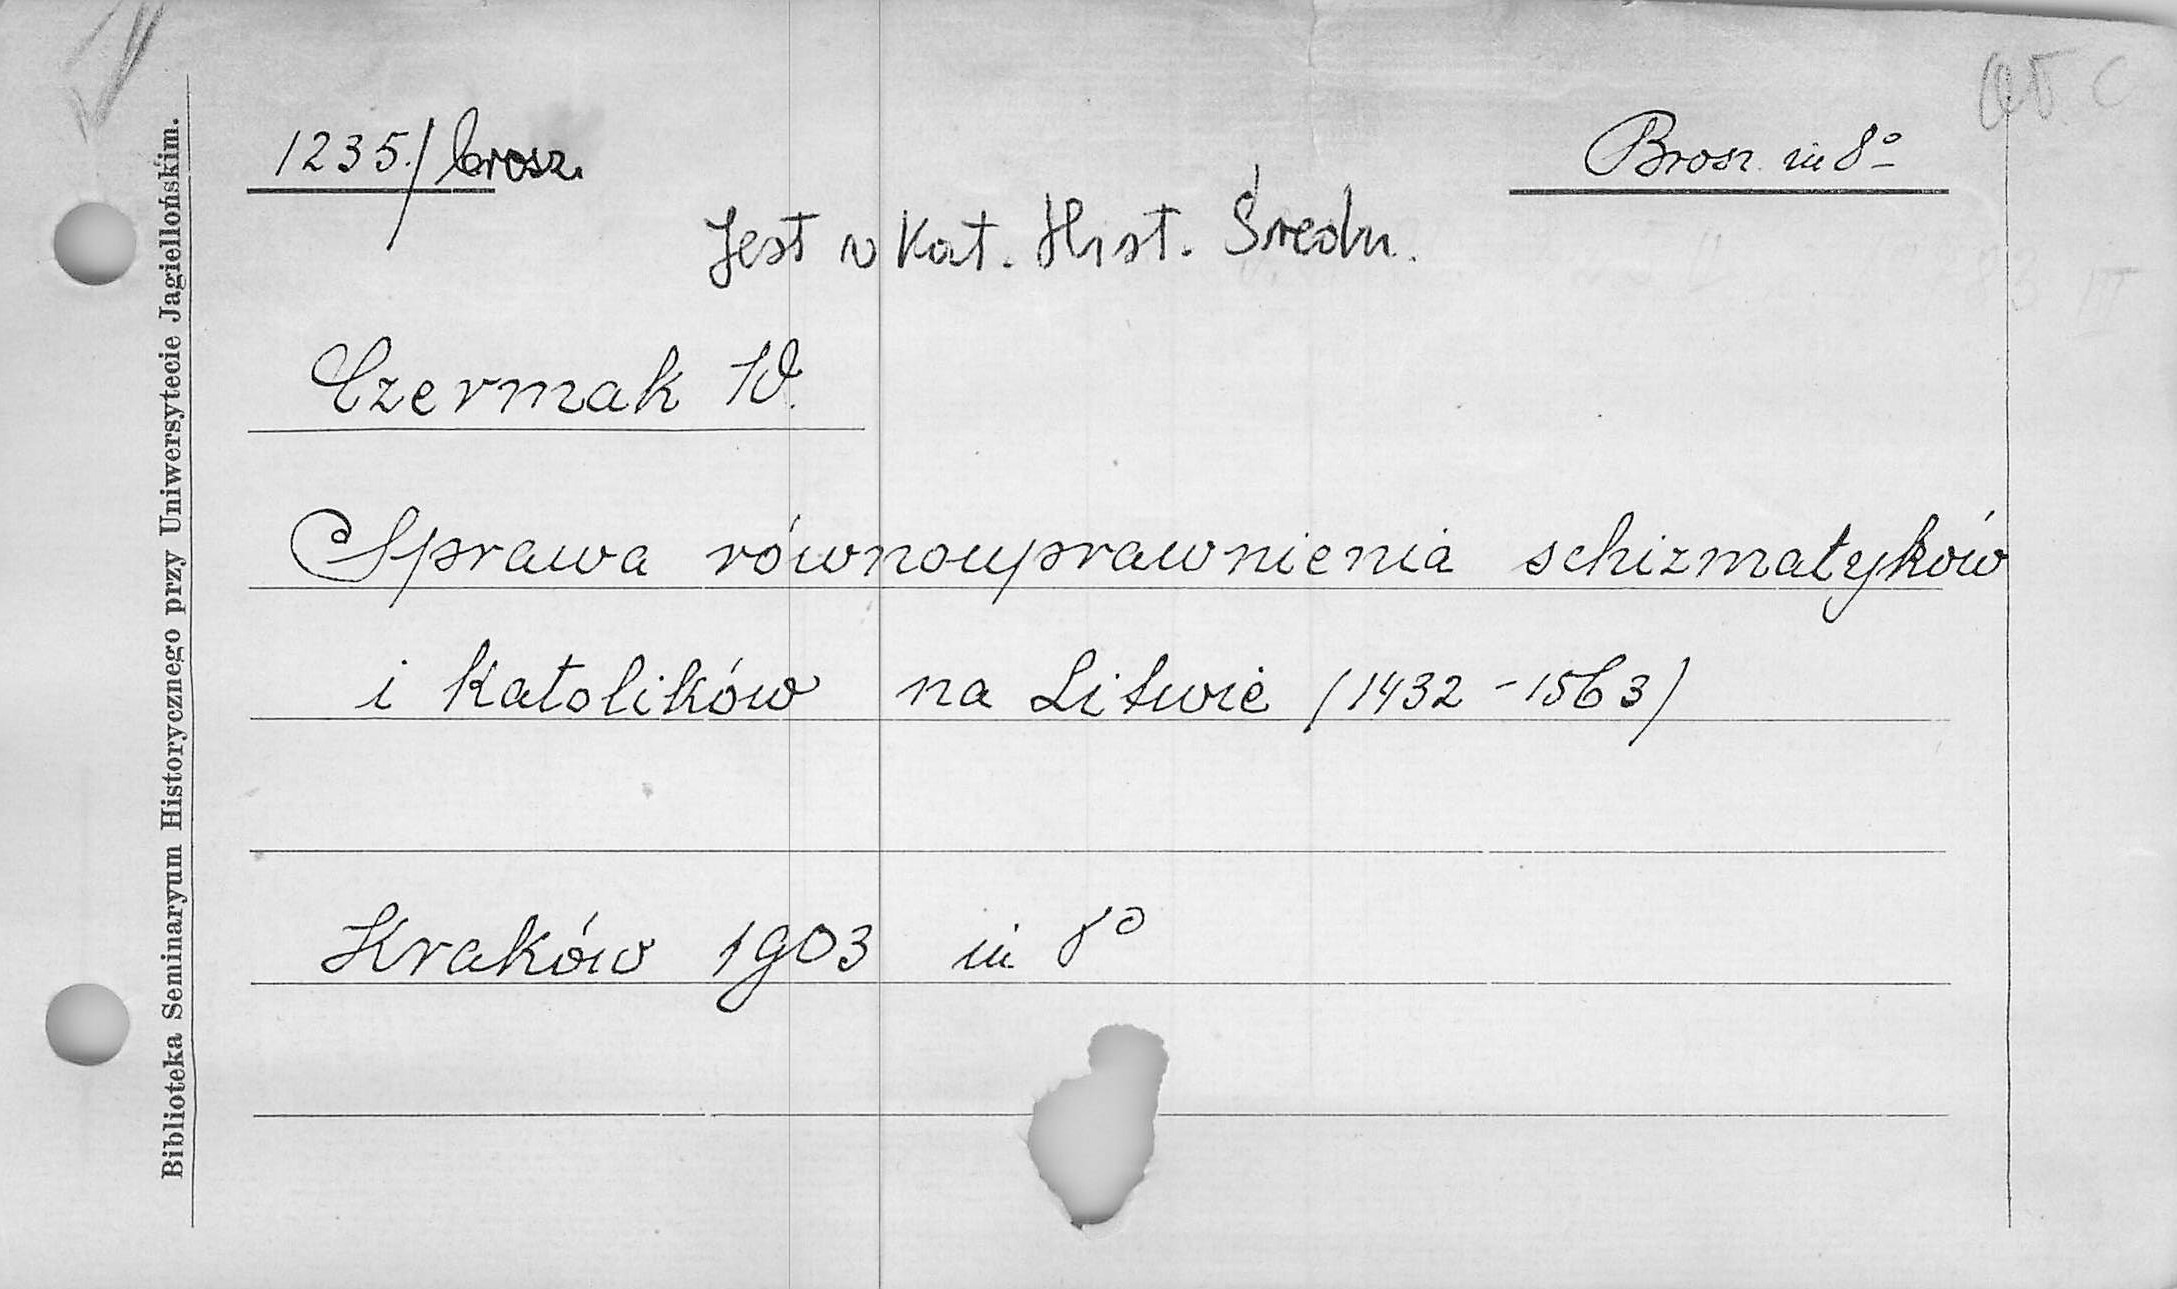 1235./brosz.
Brosz. in 8º
Jest w Kat. Hist. Średn.
Czermak W.
Sprawa równouprawnienia schizmatyków
i katolików na Litwie (1432-1563)
Kraków 1903 in 8º
Biblioteka Seminaryum Historycznego przy Uniwersytecie Jagiellońskim.